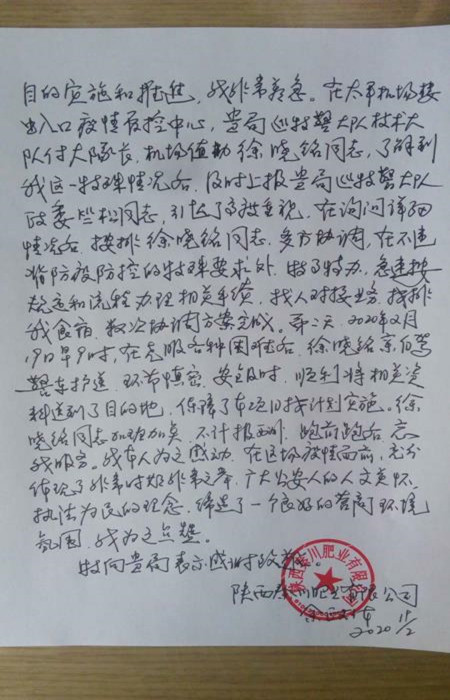 目的实施和推进，我非常着急。在太平机场楼
出入口疫情防控中心，贵局巡特警大队技术大
队付大队长、机场值勤徐晓铭同志，了解到
我这一特殊情况后，及时上报贵局巡特警大队
政委 松同志，引起了高度重视，在询问详细
情况后，安排徐晓铭同志，多方协调，在不违
背防疫防控的特殊要求外，特事特办，急速按
规定和流程办理相关手续，找人对接业务，找排
我食宿，数次协调方案完成。第二天，2020年2月
19日早9时，在克服各种困难后，徐晓铭亲自驾
警车护送，环节慎密，安全及时，顺利将相关资
料送到了目的地，保障了本项目按计划实施。徐
晓铭同志加班加点，不计报酬，跑前跑后，为
我服务。我本人为之感动。在这场疫情面前，充分
体现了非常时期非常之举，广大公安人的人文关怀，
执法为民的理念，缔造了一个良好的营商环境
氛围，我为之点赞。
特向贵局表示感谢并致
陕西 川肥业有限公司
2020 2
陕西 川肥业有限公司